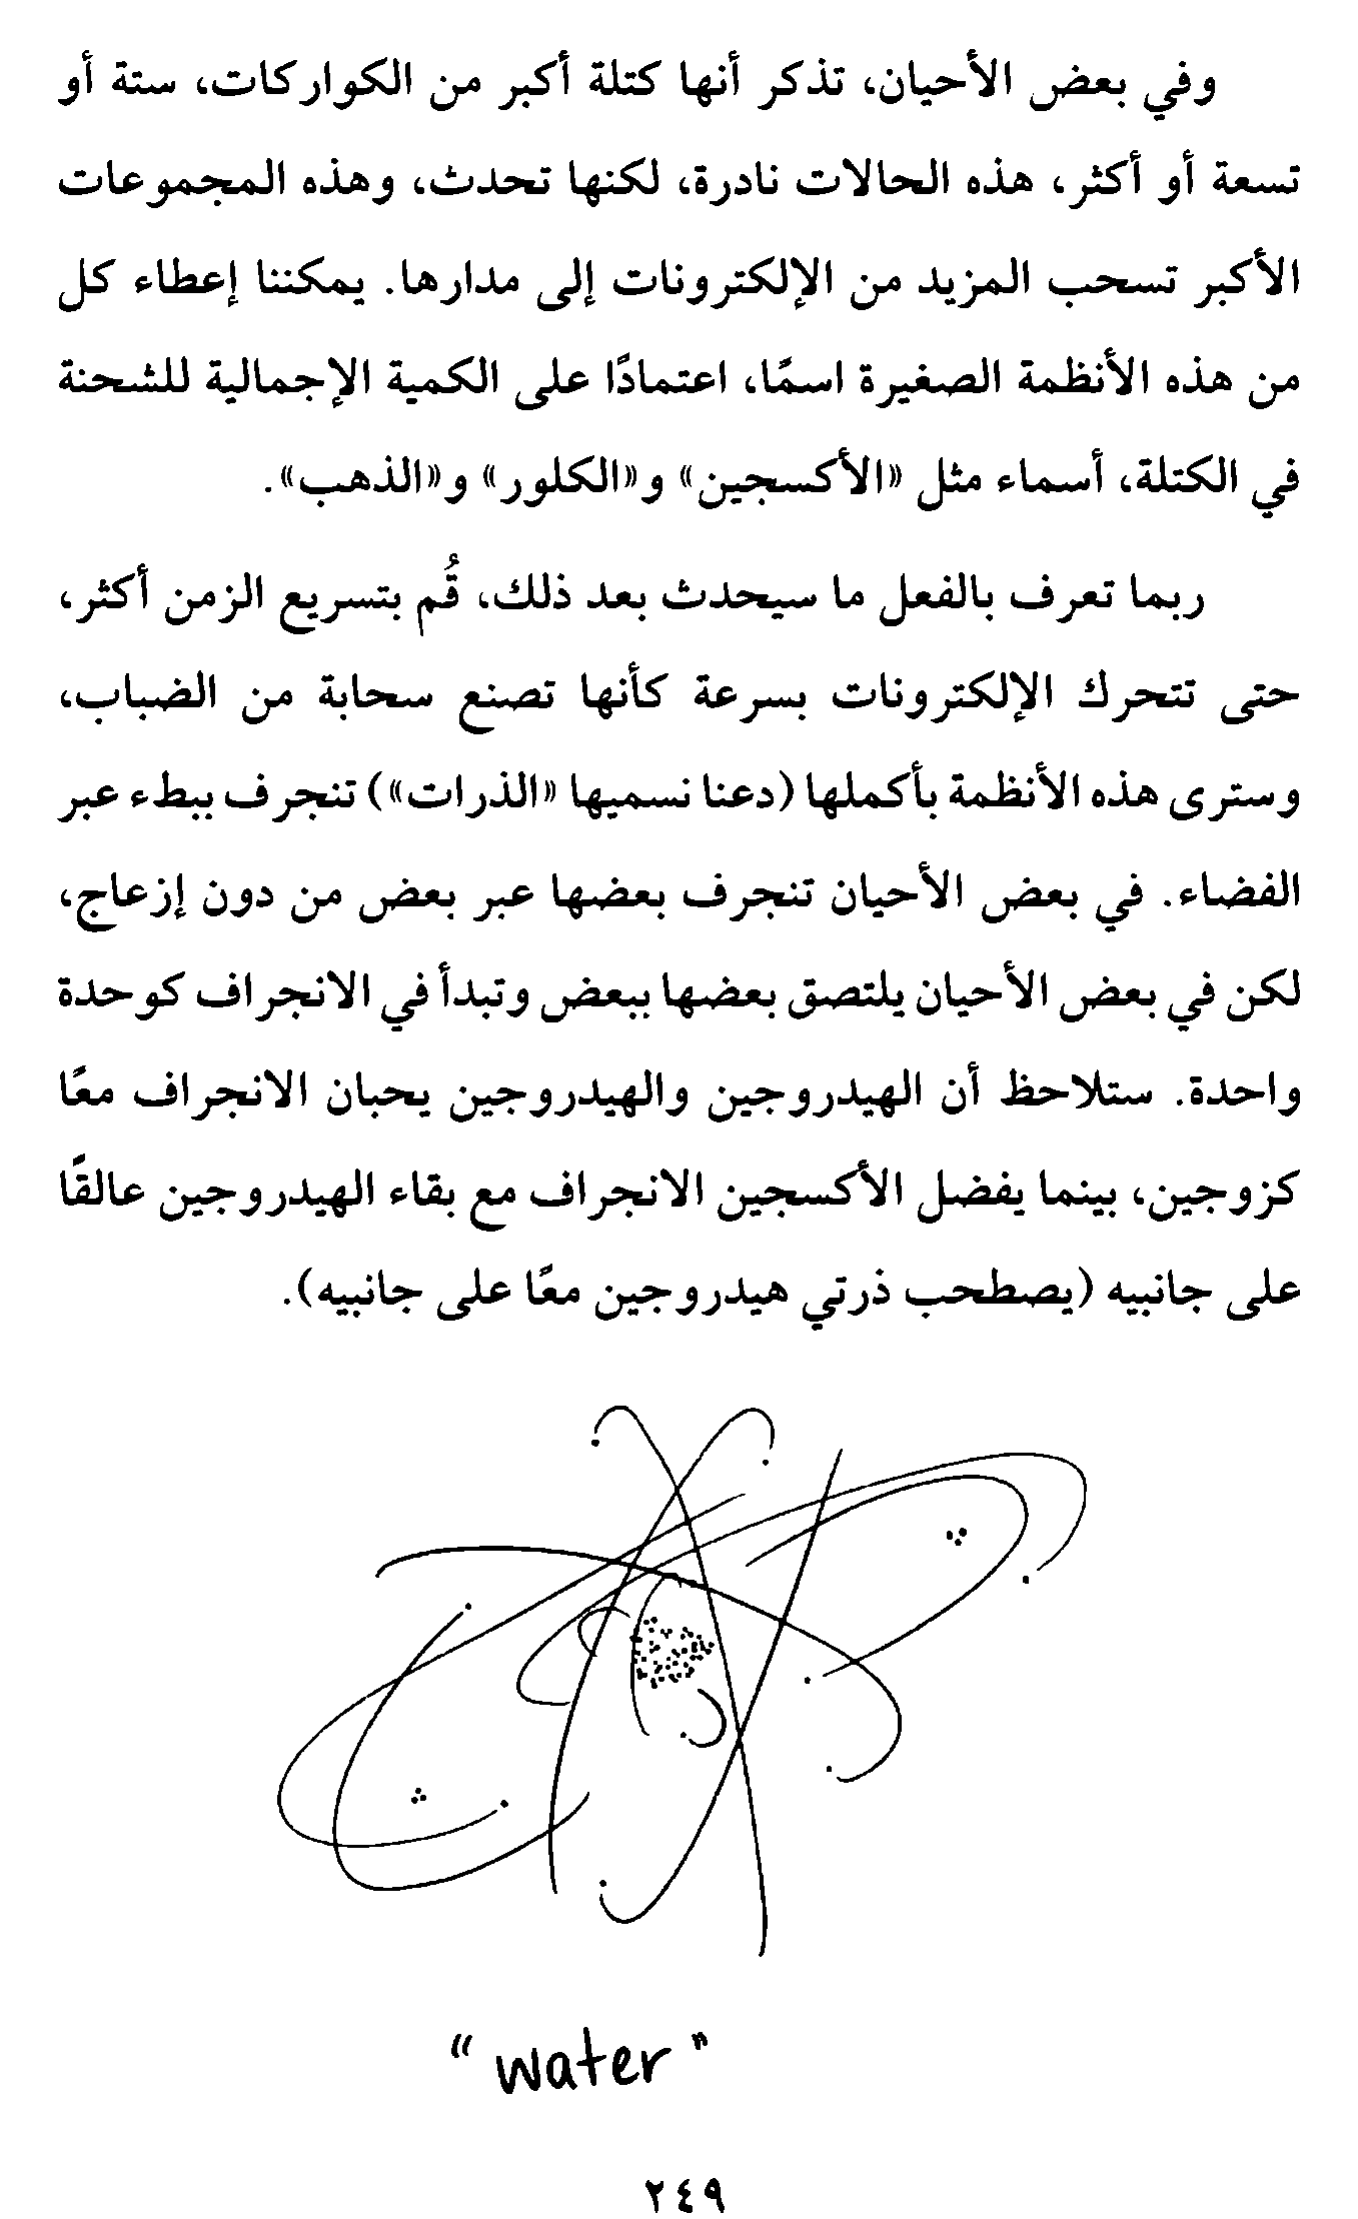 وفي بعض الأحيان، تذكر أنها كتلة أكبر من الكواركات، ستة أو
تسعة أو أكثر، هذه الحالات نادرة، لكنها تحدث، وهذه المجموعات
الأكبر تسحب المزيد من الإلكترونات إلى مدارها. يمكننا إعطاء كل
من هذه الأنظمة الصغيرة اسمًا، اعتمادًا على الكمية الإجمالية للشحنة
في الكتلة، أسماء مثل «الأكسجين» و«الكلور» و«الذهب».
ربما تعرف بالفعل ما سيحدث بعد ذلك، قُم بتسريع الزمن أكثر،
حتى تتحرك الإلكترونات بسرعة كأنها تصنع سحابة من الضباب،
وسترى هذه الأنظمة بأكملها (دعنا نسميها «الذرات») تنجرف ببطء عبر
الفضاء. في بعض الأحيان تنجرف بعضها عبر بعض من دون إزعاج،
لكن في بعض الأحيان يلتصق بعضها ببعض وتبدأ في الانجراف كوحدة
واحدة. ستلاحظ أن الهيدروجين والهيدروجين يحبان الانجراف معًا
كزوجين، بينما يفضل الأكسجين الانجراف مع بقاء الهيدروجين عالقًا
على جانبيه (يصطحب ذرتي هيدروجين معًا على جانبيه).
"water"
٢٤٩